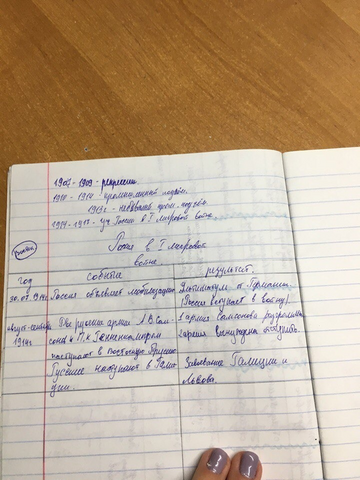 1907 - 1909 - репрессии
1910 - 1914 - промышленный подъём.
1913г - небывалый пром. подъём.
1914 - 1918 - уч. России в I мировой войне.
Россия в I мировой
войне.
год
событие
результат.
30.07.1914г.
Россия объявляет мобилизацию
Ультиматум от Германии.
(Россия вступает в войну).
август-сентябрь
1914г
Две русские армии А.В. Сам-
сонов и П.К Ренненкампф
наступают в Восточную Пруссию
Русские наступают в Гали-
ции.
1 армия Самсонова разгромлена
2 армия вынуждена отступить.
Завоевание Галиции и
Львова.